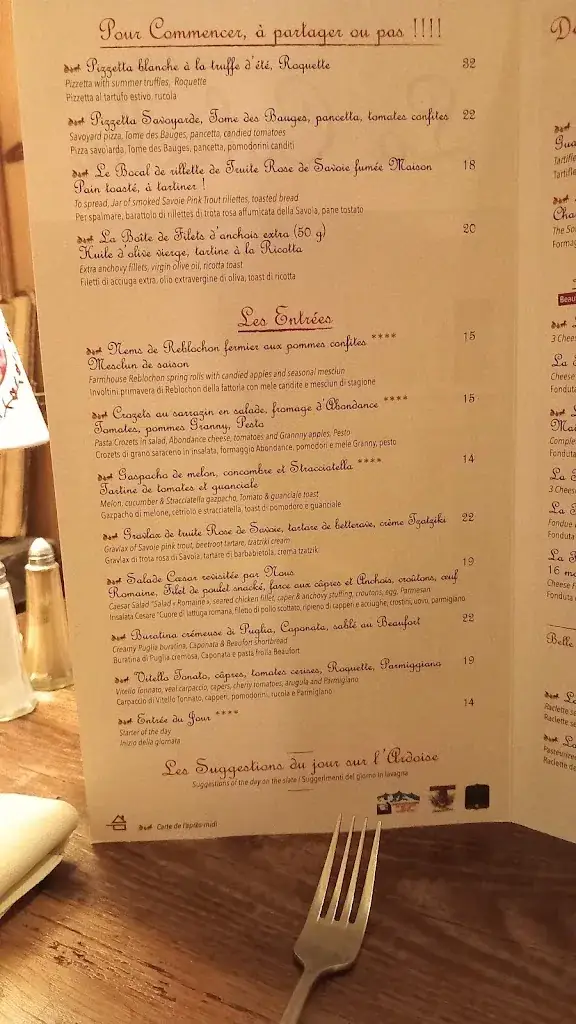 Pour Commencer, à partager ou pas !!!!
Pizzetta blanche à la truffe d'été, Roquette 32
Pizzetta with summer truffles, Roquette
Pizzetta al tartufo estivo, rucola
Pizzetta Savoyarde, Tome des Bauges, pancetta, tomates confites 22
Savoyard pizza, Tome des Bauges, pancetta, candied tomatoes
Pizza savoiarda, Tome des Bauges, pancetta, pomodorini canditi
Le Bocal de rillette de Truite Rose de Savoie fumée Maison 18
Pain toasté, à tartiner !
To spread, Jar of smoked Savoie Pink Trout rillettes, toasted bread
Per spalmare, barattolo di rillettes di trota rosa affumicata della Savoia, pane tostato
La Boîte de Filets d'anchois extra (50 g) 20
Huile d'olive vierge, tartine à la Ricotta
Extra anchovy fillets, virgin olive oil, ricotta toast
Filetti di acciuga extra, olio extravergine di oliva, toast di ricotta
Les Entrées
Nems de Reblochon fermier aux pommes confites **** 15
Mesclun de saison
Farmhouse Reblochon spring rolls with candied apples and seasonal mesclun
Involtini primavera di Reblochon della fattoria con mele candite e mesclun di stagione
Crozets au sarrazin en salade, fromage d'Abondance **** 15
Tomates, pommes Granny, Pesto
Pasta Crozets in salad, Abondance cheese, tomatoes and Grannny apples, Pesto
Crozets di grano saraceno in insalata, formaggio Abondance, pomodori e mele Granny, pesto
Gaspacho de melon, concombre et Stracciatella **** 14
Tartine de tomates et guanciale
Melon, cucumber & Stracciatella gazpacho, Tomato & guanciale toast
Gazpacho di melone, cetriolo e stracciatella, toast di pomodoro e guanciale
Gravlax de truite Rose de Savoie, tartare de betterave, crème Tzatziki 22
Gravlax of Savoie pink trout, beetroot tartare, tzatziki cream
Gravlax di trota rosa di Savoia, tartare di barbabietola, crema tzatzik
Salade Cæsar revisitée par Nous 19
Romaine, Filet de poulet snacké, farce aux câpres et Anchois, croûtons, œuf
Caesar Salad "Salad « Romaine », seared chicken fillet, caper & anchovy stuffing, croutons, egg, Parmesan
Insalata Cesare "Cuore di lattuga romana, filetto di pollo scottato, ripieno di capperi e acciughe, crostini, uovo, parmigiano
Buratina crémeuse di Puglia, Caponata, sablé au Beaufort 22
Creamy Puglia buratina, Caponata & Beaufort shortbread
Buratina di Puglia cremosa, Caponata e pasta frolla Beaufort
Vitello Tonato, câpres, tomates cerises, Roquette, Parmiggiano 19
Vitello Tonnato, veal carpaccio, capers, cherry tomatoes, arugula and Parmigiano
Carpaccio di Vitello Tonnato, capperi, pomodorini, rucola e Parmigiano
Entrée du Jour **** 14
Starter of the day
Inizio della giornata
Les Suggestions du jour sur l'Ardoise
Suggestions of the day on the slate / Suggerimenti del giorno in lavagna
Carte de l'après-midi
Tartifle
3 Cheese
Cheese
Fonduta
Comple
Fonduta
3 Cheese
Fonduta
Fondue
Fonduta
16 mo
Cheese
Fonduta
Belle
Raclette se
Raclette se
Raclette de